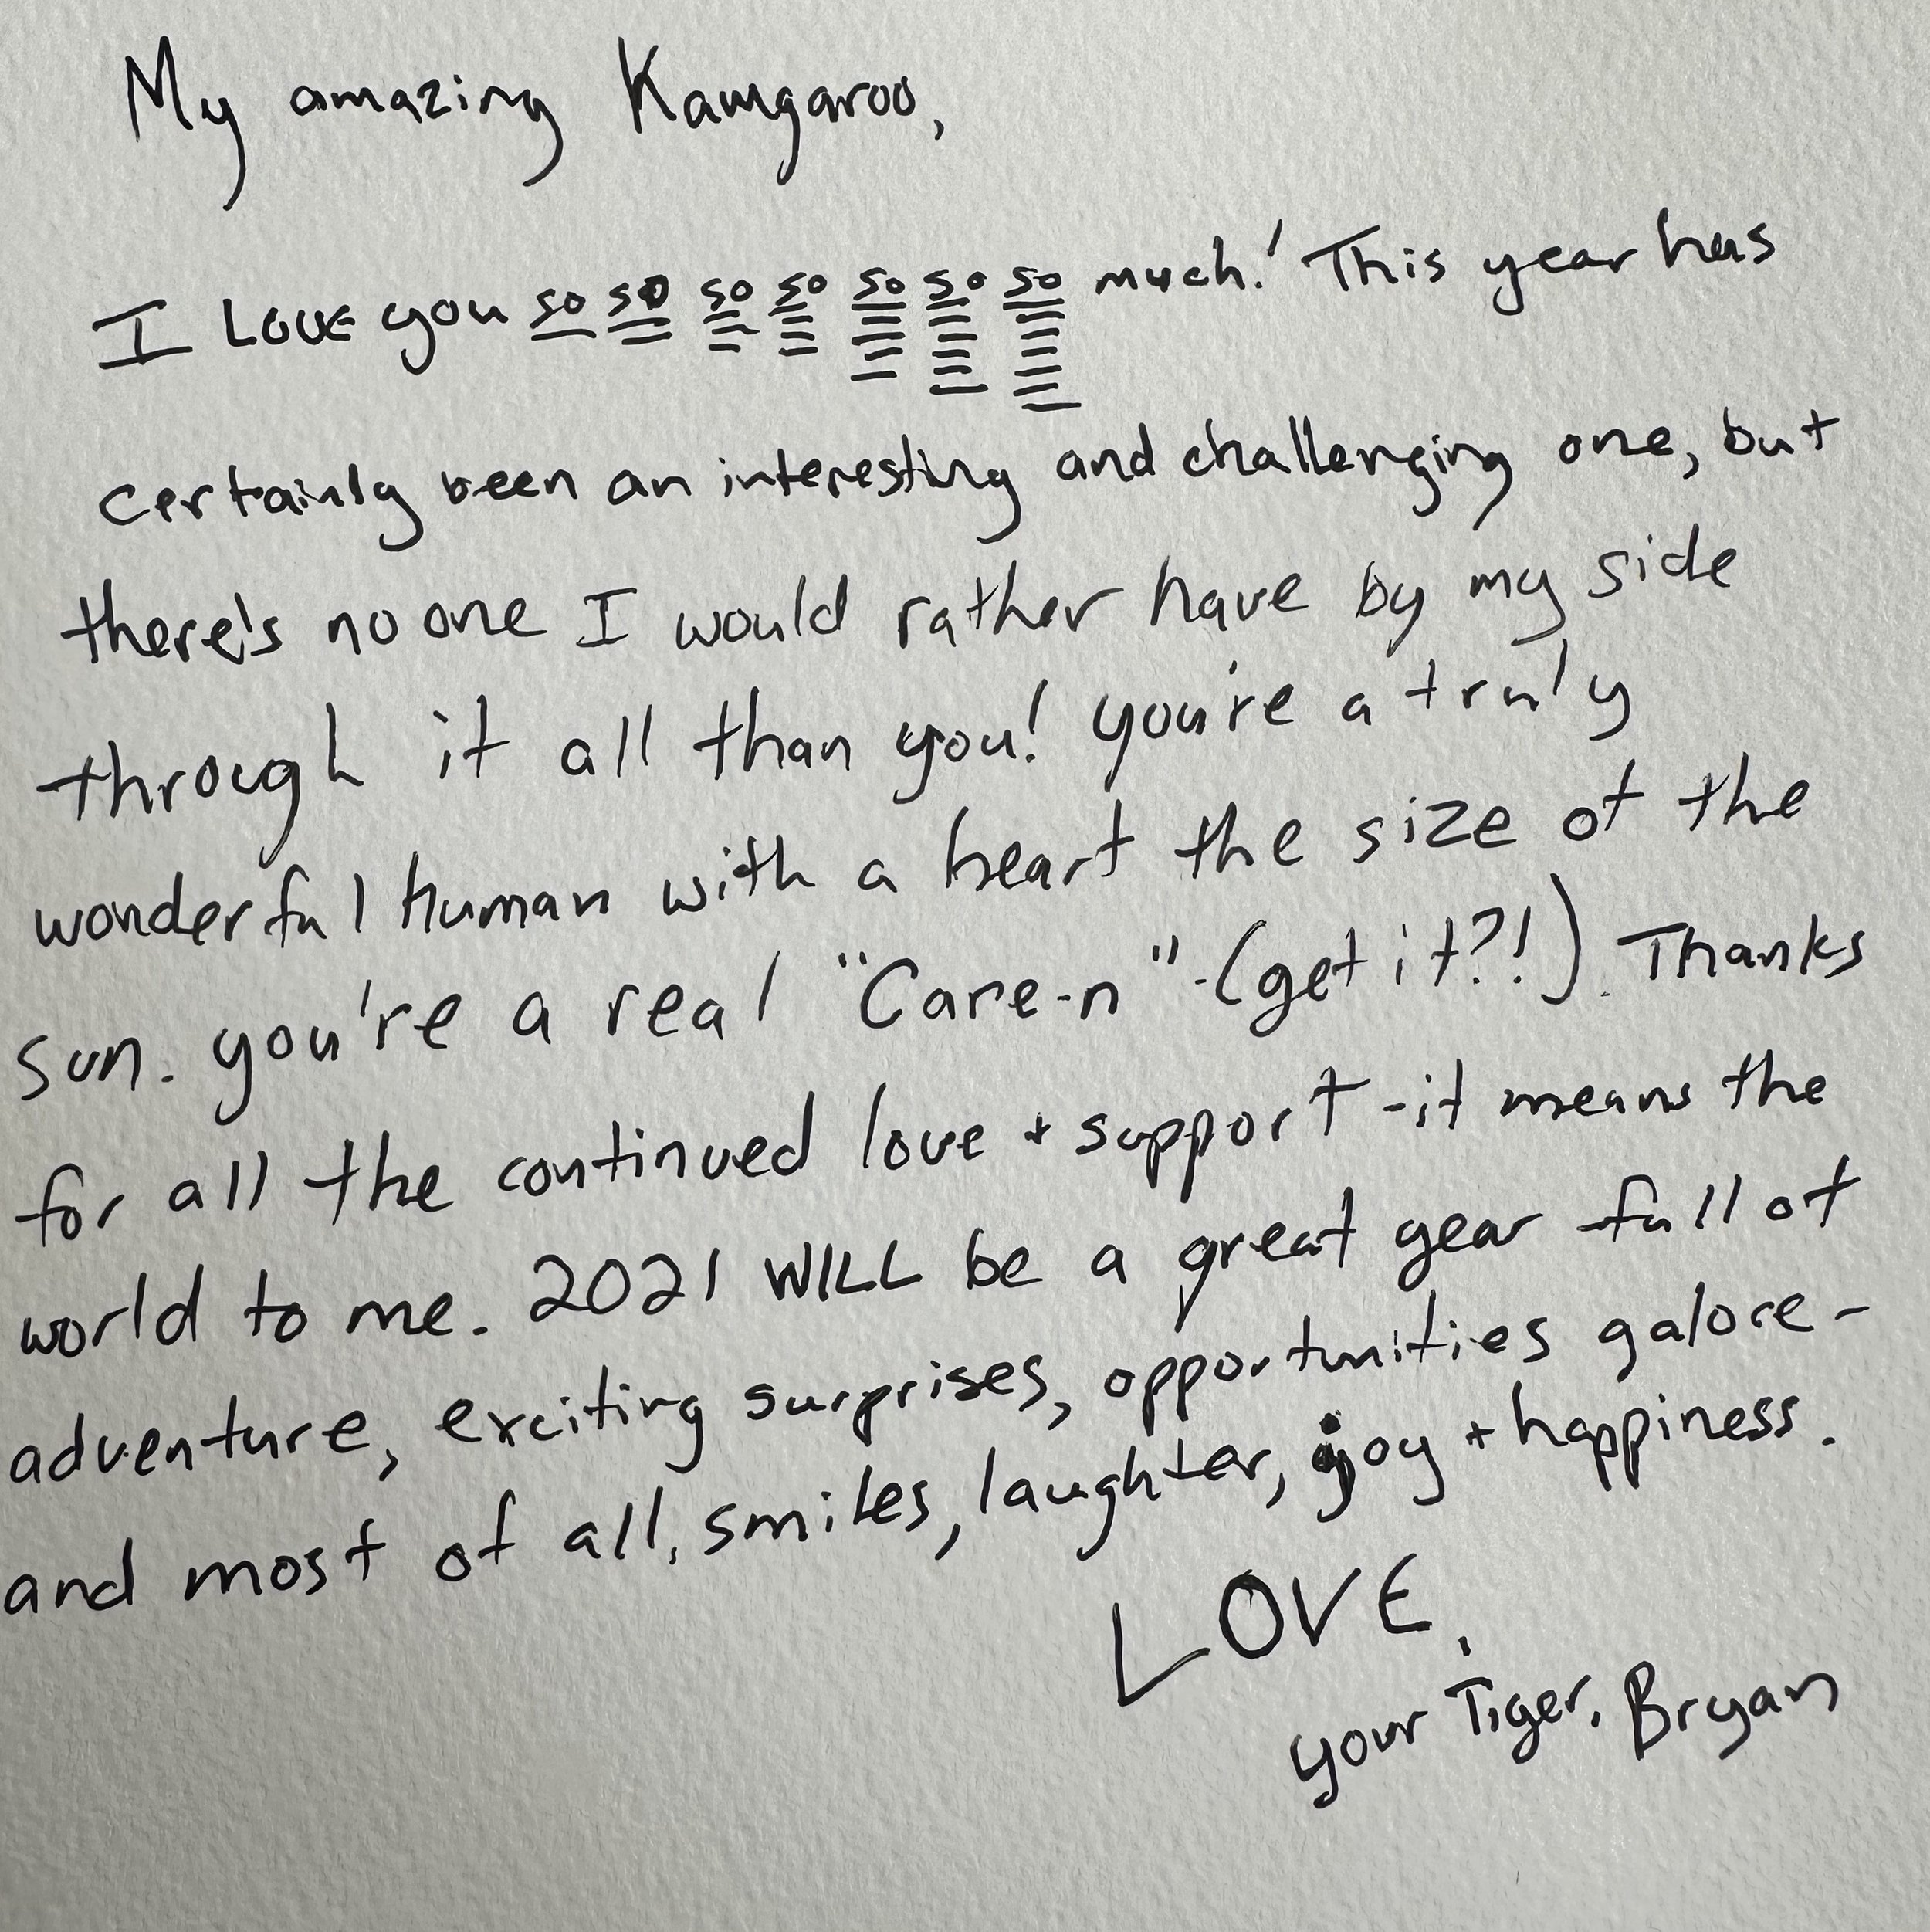 My amazing Kangaroo,
I LOVE you so so so so so so so much! This year has
certainly been an interesting and challenging one, but
there's no one I would rather have by my side
through it all than you! you're a truly
wonderful human with a heart the size of the
sun. you're a real "Care-n" - (get it?!). Thanks
for all the continued love + support - it means the
world to me. 2021 WILL be a great year full of
adventure, exciting surprises, opportunities galore -
and most of all, smiles, laughter, joy + happiness.
LOVE,
your Tiger, Bryan